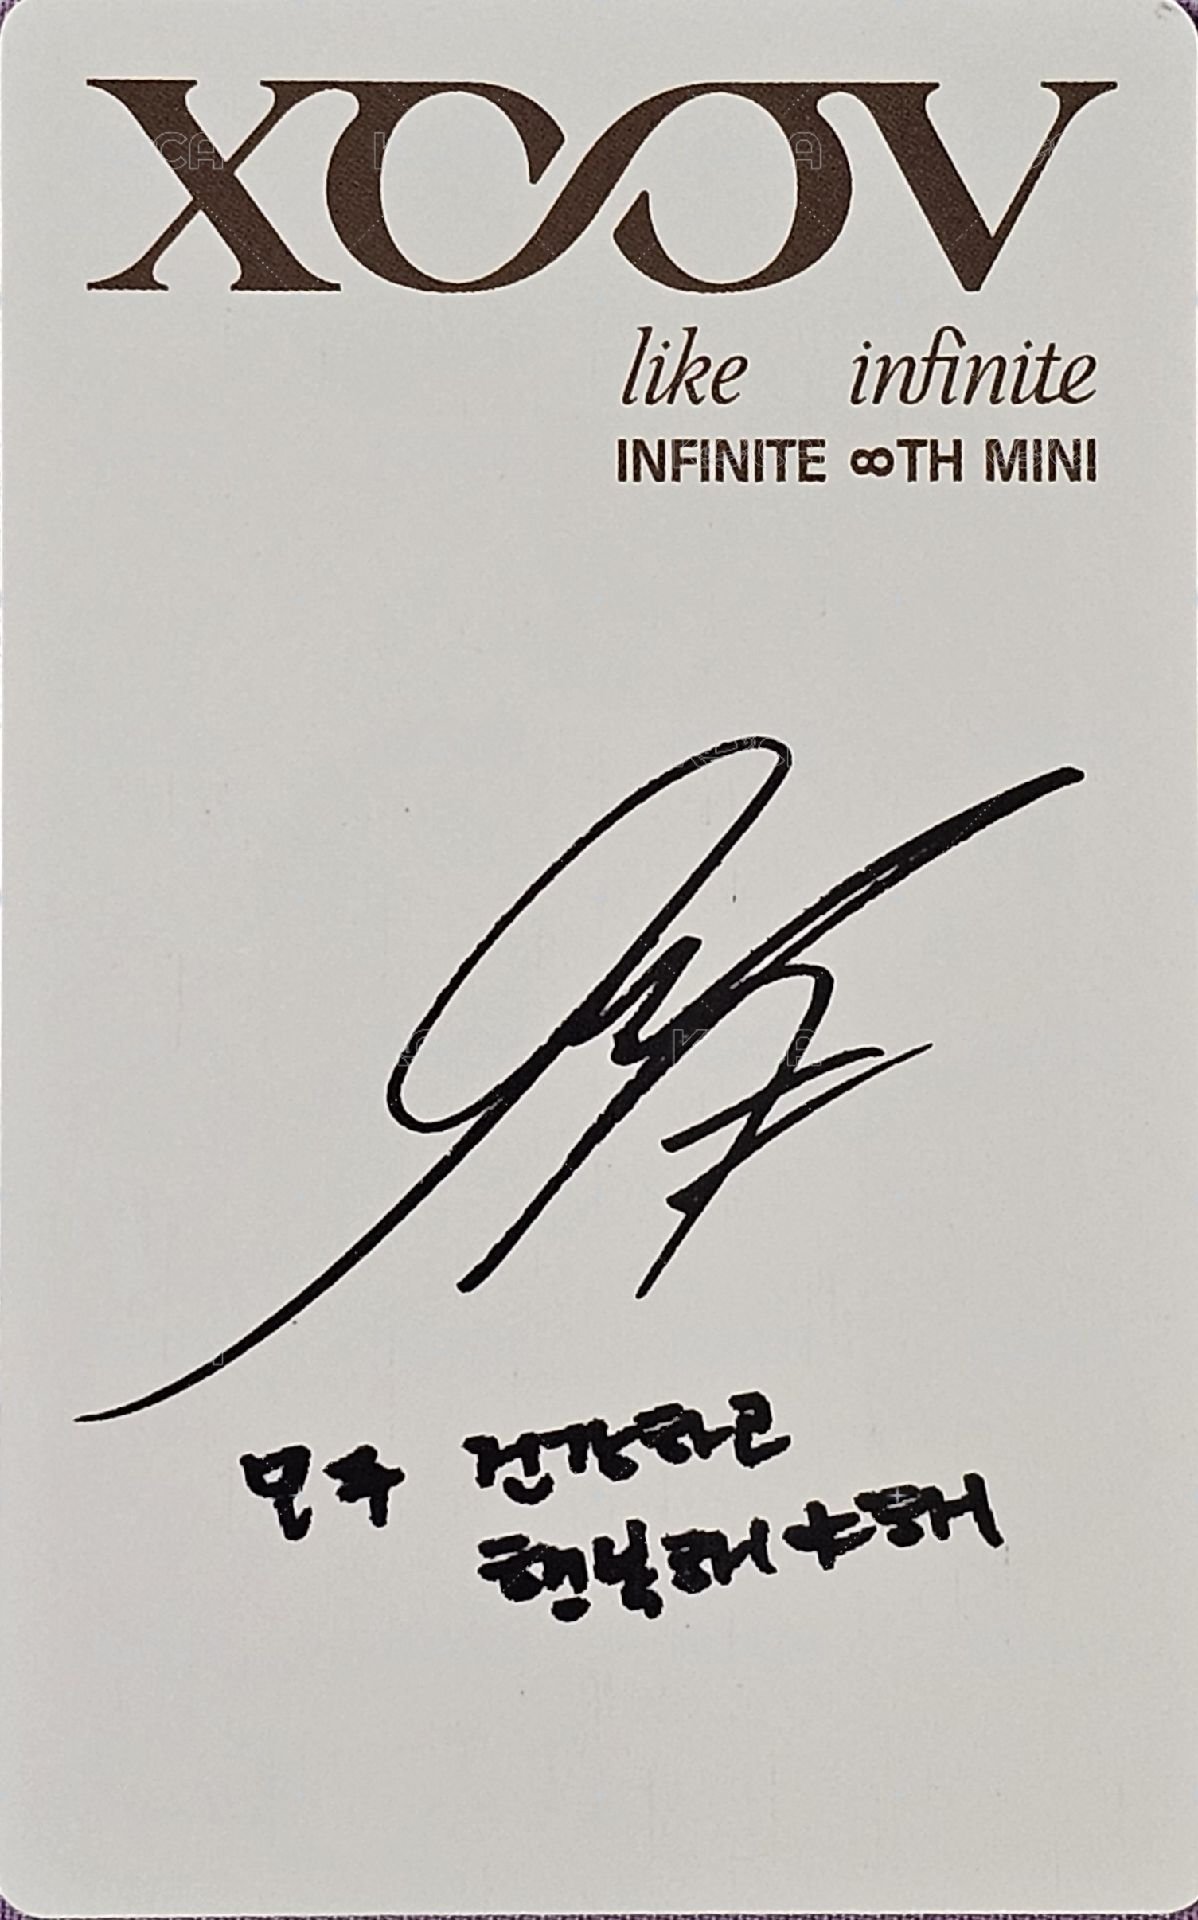 XOOV
like infinite
INFINITE ∞TH MINI
모두 건강하고
행복해야해